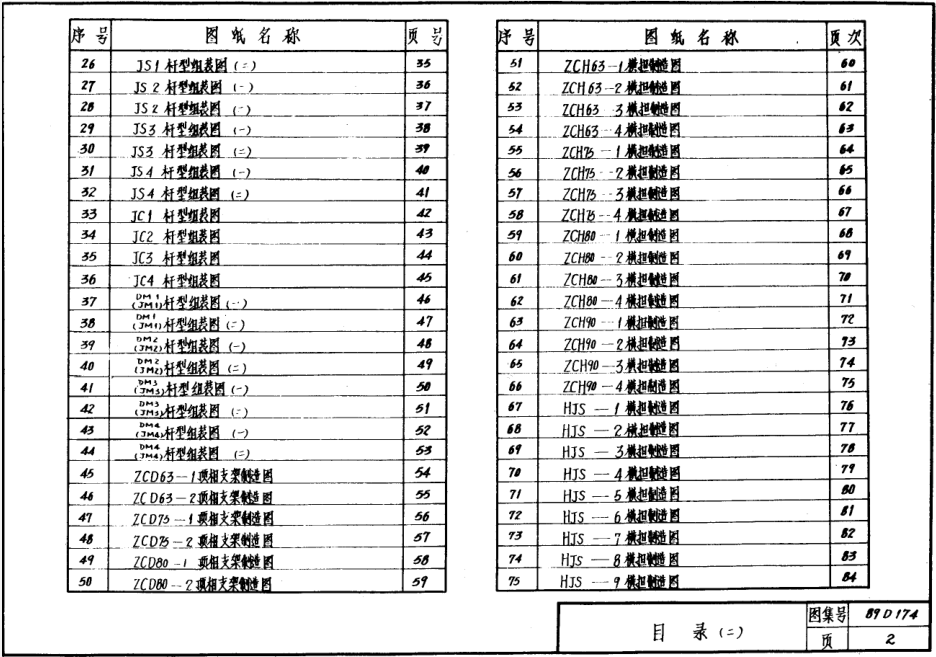 序 号 图 纸 名 称 页 号
26 JS1 杆型组装图 (二) 35
27 JS2 杆型组装图 (一) 36
28 JS2 杆型组装图 (二) 37
29 JS3 杆型组装图 (一) 38
30 JS3 杆型组装图 (二) 39
31 JS4 杆型组装图 (一) 40
32 JS4 杆型组装图 (二) 41
33 JC1 杆型组装图 42
34 JC2 杆型组装图 43
35 JC3 杆型组装图 44
36 JC4 杆型组装图 45
37 DM1(JM1)杆型组装图 (一) 46
38 DM1(JM1)杆型组装图 (二) 47
39 DM2(JM2)杆型组装图 (一) 48
40 DM2(JM2)杆型组装图 (二) 49
41 DM3(JM3)杆型组装图 (一) 50
42 DM3(JM3)杆型组装图 (二) 51
43 DM4(JM4)杆型组装图 (一) 52
44 DM4(JM4)杆型组装图 (二) 53
45 ZCD63—1顶相支架制造图 54
46 ZCD63—2顶相支架制造图 55
47 ZCD75—1顶相支架制造图 56
48 ZCD75—2顶相支架制造图 57
49 ZCD80—1 顶相支架制造图 58
50 ZCD80—2顶相支架制造图 59
序 号 图 纸 名 称 页 次
51 ZCH63—1横担制造图 60
52 ZCH63—2横担制造图 61
53 ZCH63—3横担制造图 62
54 ZCH63—4横担制造图 63
55 ZCH75—1横担制造图 64
56 ZCH75—2横担制造图 65
57 ZCH75—3横担制造图 66
58 ZCH75—4横担制造图 67
59 ZCH80—1横担制造图 68
60 ZCH80—2横担制造图 69
61 ZCH80—3横担制造图 70
62 ZCH80—4横担制造图 71
63 ZCH90—1横担制造图 72
64 ZCH90—2横担制造图 73
65 ZCH90—3横担制造图 74
66 ZCH90—4横担制造图 75
67 HJS—1横担制造图 76
68 HJS—2横担制造图 77
69 HJS—3横担制造图 78
70 HJS—4横担制造图 79
71 HJS—5横担制造图 80
72 HJS—6横担制造图 81
73 HJS—7横担制造图 82
74 HJS—8横担制造图 83
75 HJS—9横担制造图 84
目 录 (二)
图集号 89D174
页 2